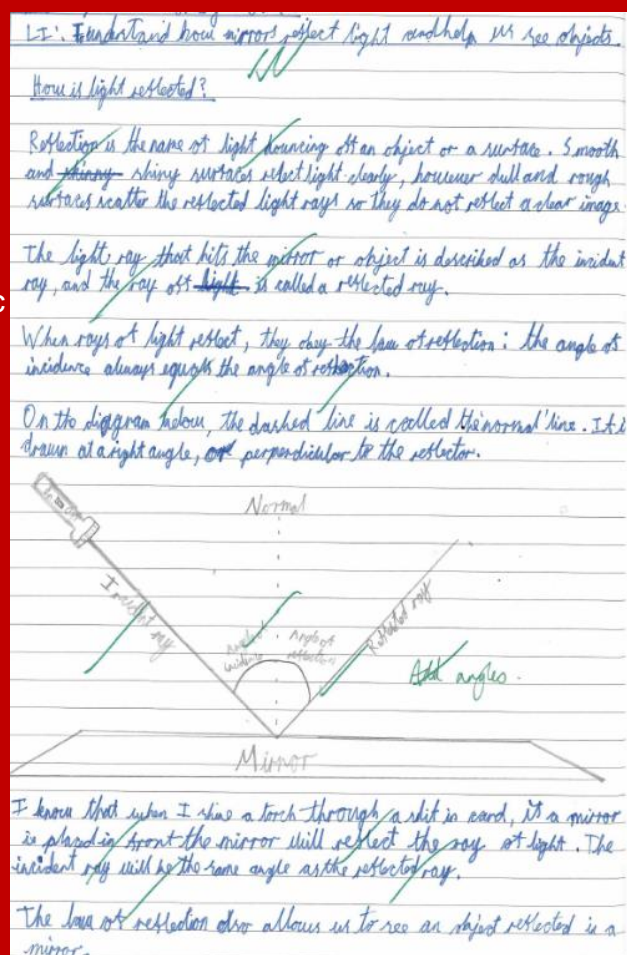 LI: I understand how mirrors reflect light and help us see objects.
How is light reflected?
Reflection is the name of light bouncing off an object or a surface. Smooth
and shinny shiny surfaces relect light clearly, however dull and rough
surfaces scatter the reflected light rays so they do not reflect a clear image.
The light ray that hits the mirror or object is described as the incident
ray, and the ray off light is called a reflected ray.
c
When rays of light reflect, they obey the law of reflection: the angle of
incidence always equals the angle of reflection.
On the diagram below, the dashed line is called the 'normal' line. It i
drawn at a right angle, or perpendicular to the reflector.
Normal
Incident ray
Angle of incidence
Angle of reflection
Reflected ray
Add angles.
Mirror
I know that when I shine a torch through a slit in card, if a mirror
is placed in front the mirror will reflect the ray of light. The
incident ray will be the same angle as the reflected ray.
The law of reflection also allows us to see an object reflected in a
mirror.